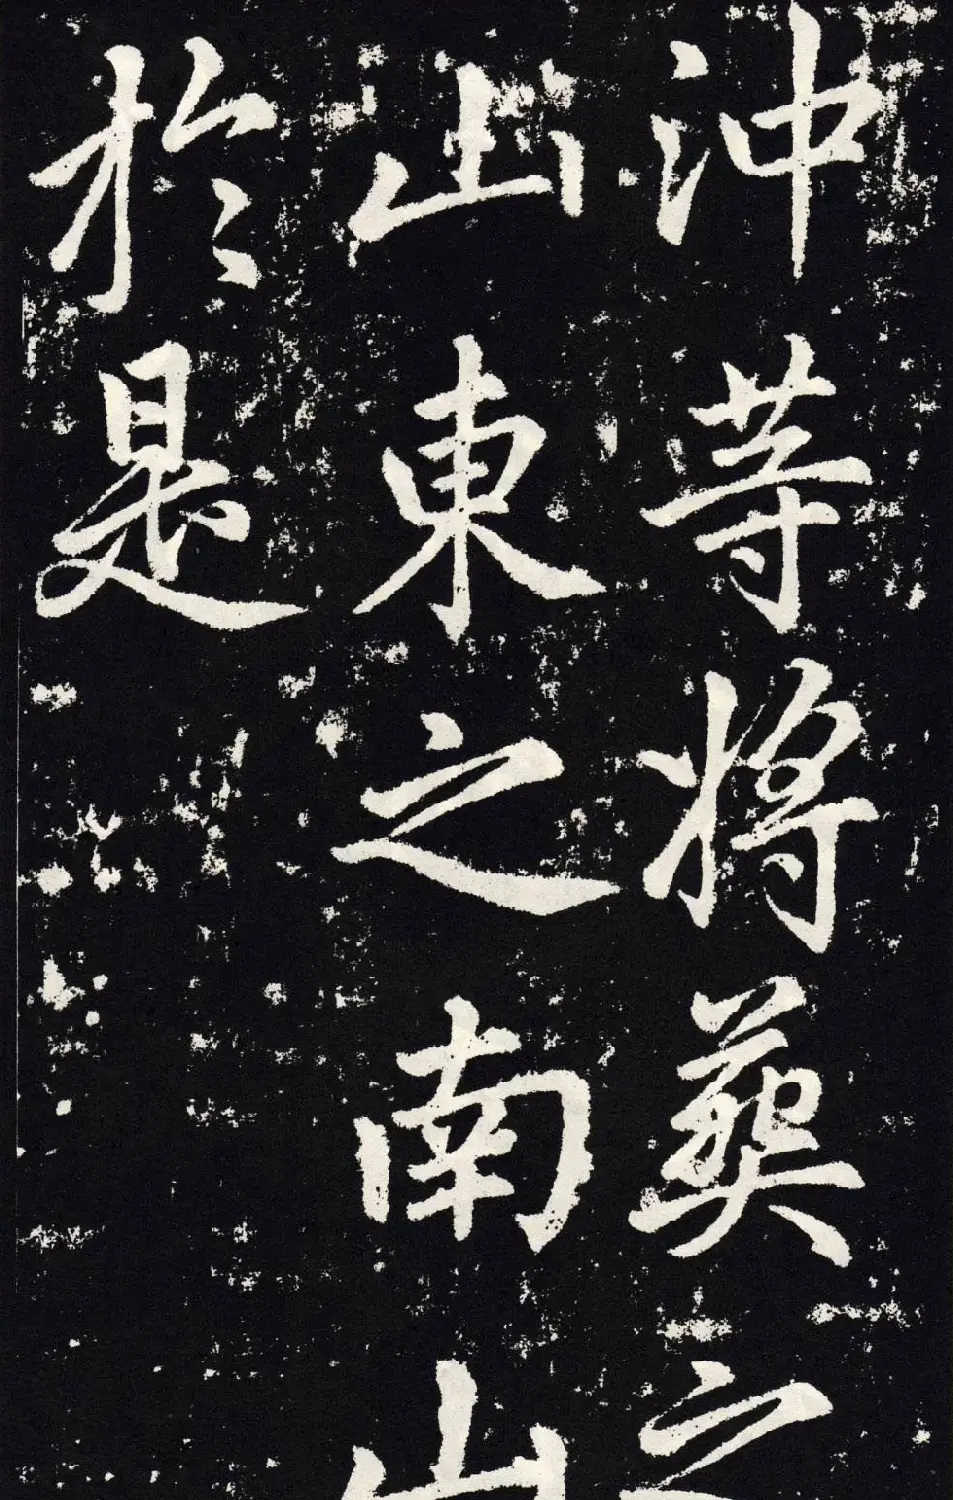 沖等將葬之
山東之南山
於是